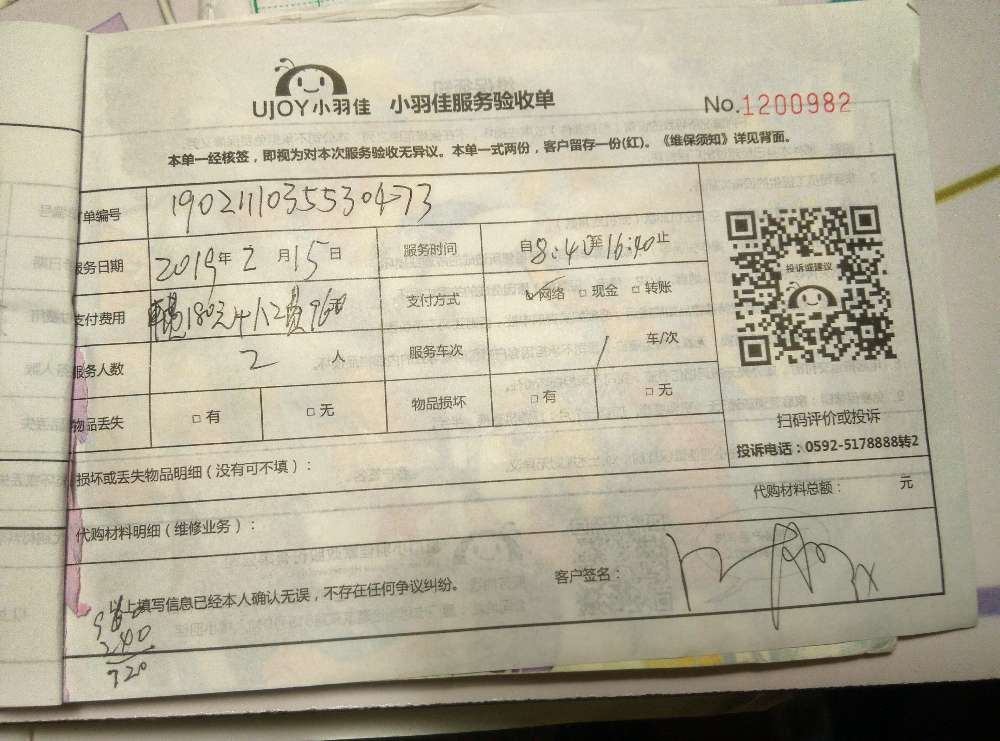 UJOY小羽佳 小羽佳服务验收单 No.1200982
本单一经核签，即视为对本次服务验收无异议。本单一式两份，客户留存一份(红)。《维保须知》详见背面。
单编号 1902111035530473
服务日期 2019年2月15日 服务时间 自8:4 至16:40止
支付费用 180元+ 960 支付方式 网络 □现金 □转账
服务人数 2人 服务车次 / 车/次
物品丢失 □有 □无 物品损坏 □有 □无
投诉或建议
扫码评价或投诉
投诉电话：0592-5178888转2
损坏或丢失物品明细（没有可不填）：
代购材料明细（维修业务）： 代购材料总额： 元
以上填写信息已经本人确认无误，不存在任何争议纠纷。 客户签名：
960
240
720